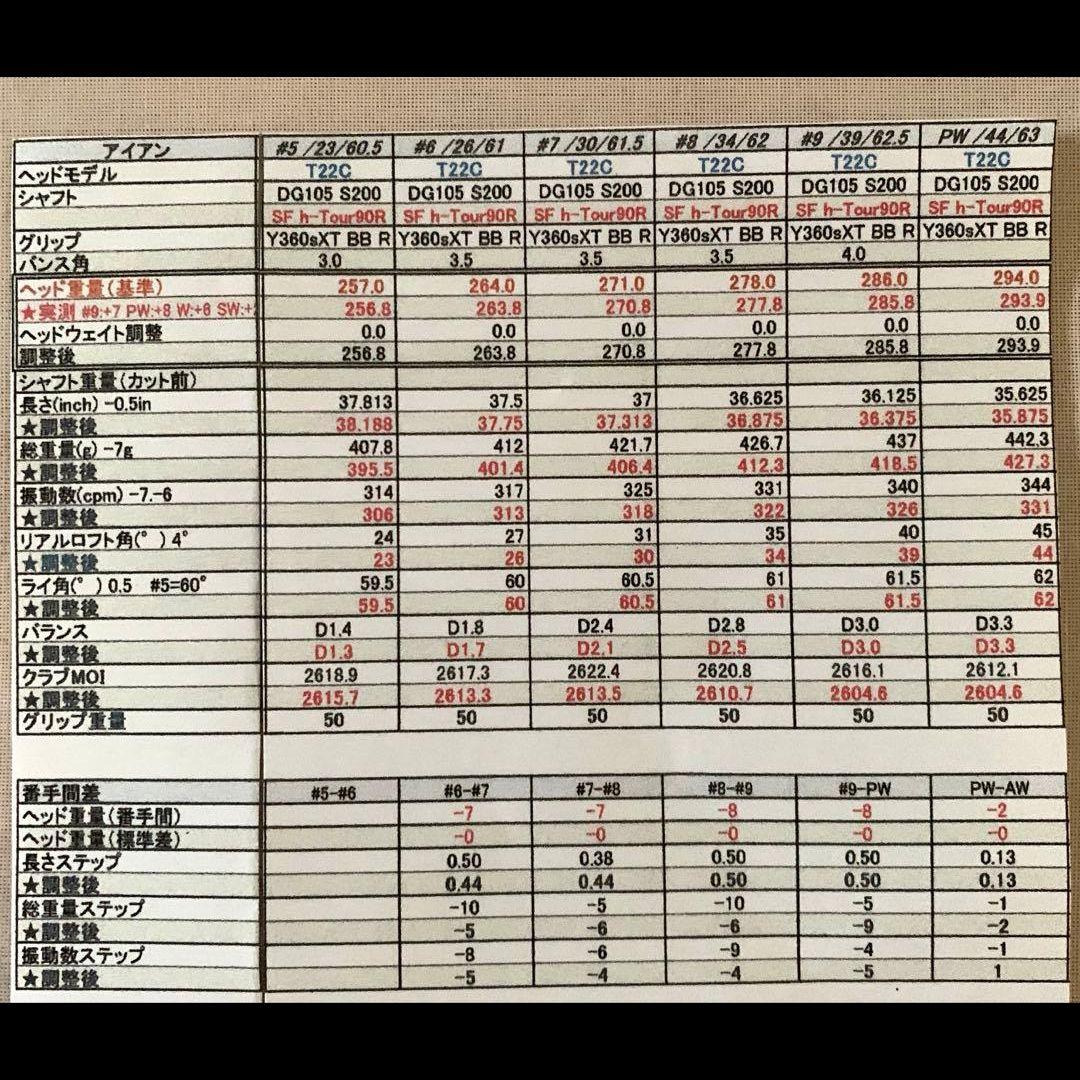 アイアン #5 /23/60.5 #6 /26/61 #7 /30/61.5 #8 /34/62 #9 /39/62.5 PW /44/63
ヘッドモデル T22C T22C T22C T22C T22C T22C
シャフト DG105 S200 DG105 S200 DG105 S200 DG105 S200 DG105 S200 DG105 S200
SF h-Tour90R SF h-Tour90R SF h-Tour90R SF h-Tour90R SF h-Tour90R SF h-Tour90R
グリップ Y360sXT BB R Y360sXT BB R Y360sXT BB R Y360sXT BB R Y360sXT BB R Y360sXT BB R
バンス角 3.0 3.5 3.5 3.5 4.0
ヘッド重量(基準) 257.0 264.0 271.0 278.0 286.0 294.0
★実測 #9:+7 PW:+8 W:+6 SW:+ 256.8 263.8 270.8 277.8 285.8 293.9
ヘッドウェイト調整 0.0 0.0 0.0 0.0 0.0 0.0
調整後 256.8 263.8 270.8 277.8 285.8 293.9
シャフト重量(カット前)
長さ(inch) -0.5in 37.813 37.5 37 36.625 36.125 35.625
★調整後 38.188 37.75 37.313 36.875 36.375 35.875
総重量(g) -7g 407.8 412 421.7 426.7 437 442.3
★調整後 395.5 401.4 406.4 412.3 418.5 427.3
振動数(cpm) -7.-6 314 317 325 331 340 344
★調整後 306 313 318 322 326 331
リアルロフト角(°) 4° 24 27 31 35 40 45
★調整後 23 26 30 34 39 44
ライ角(°) 0.5 #5=60° 59.5 60 60.5 61 61.5 62
★調整後 59.5 60 60.5 61 61.5 62
バランス D1.4 D1.8 D2.4 D2.8 D3.0 D3.3
★調整後 D1.3 D1.7 D2.1 D2.5 D3.0 D3.3
クラブMOI 2618.9 2617.3 2622.4 2620.8 2616.1 2612.1
★調整後 2615.7 2613.3 2613.5 2610.7 2604.6 2604.6
グリップ重量 50 50 50 50 50 50
番手間差 #5-#6 #6-#7 #7-#8 #8-#9 #9-PW PW-AW
ヘッド重量(番手間) -7 -7 -8 -8 -2
ヘッド重量(標準差) -0 -0 -0 -0 -0
長さステップ 0.50 0.38 0.50 0.50 0.13
★調整後 0.44 0.44 0.50 0.50 0.13
総重量ステップ -10 -5 -10 -5 -1
★調整後 -5 -6 -6 -9 -2
振動数ステップ -8 -6 -9 -4 -1
★調整後 -5 -4 -4 -5 1